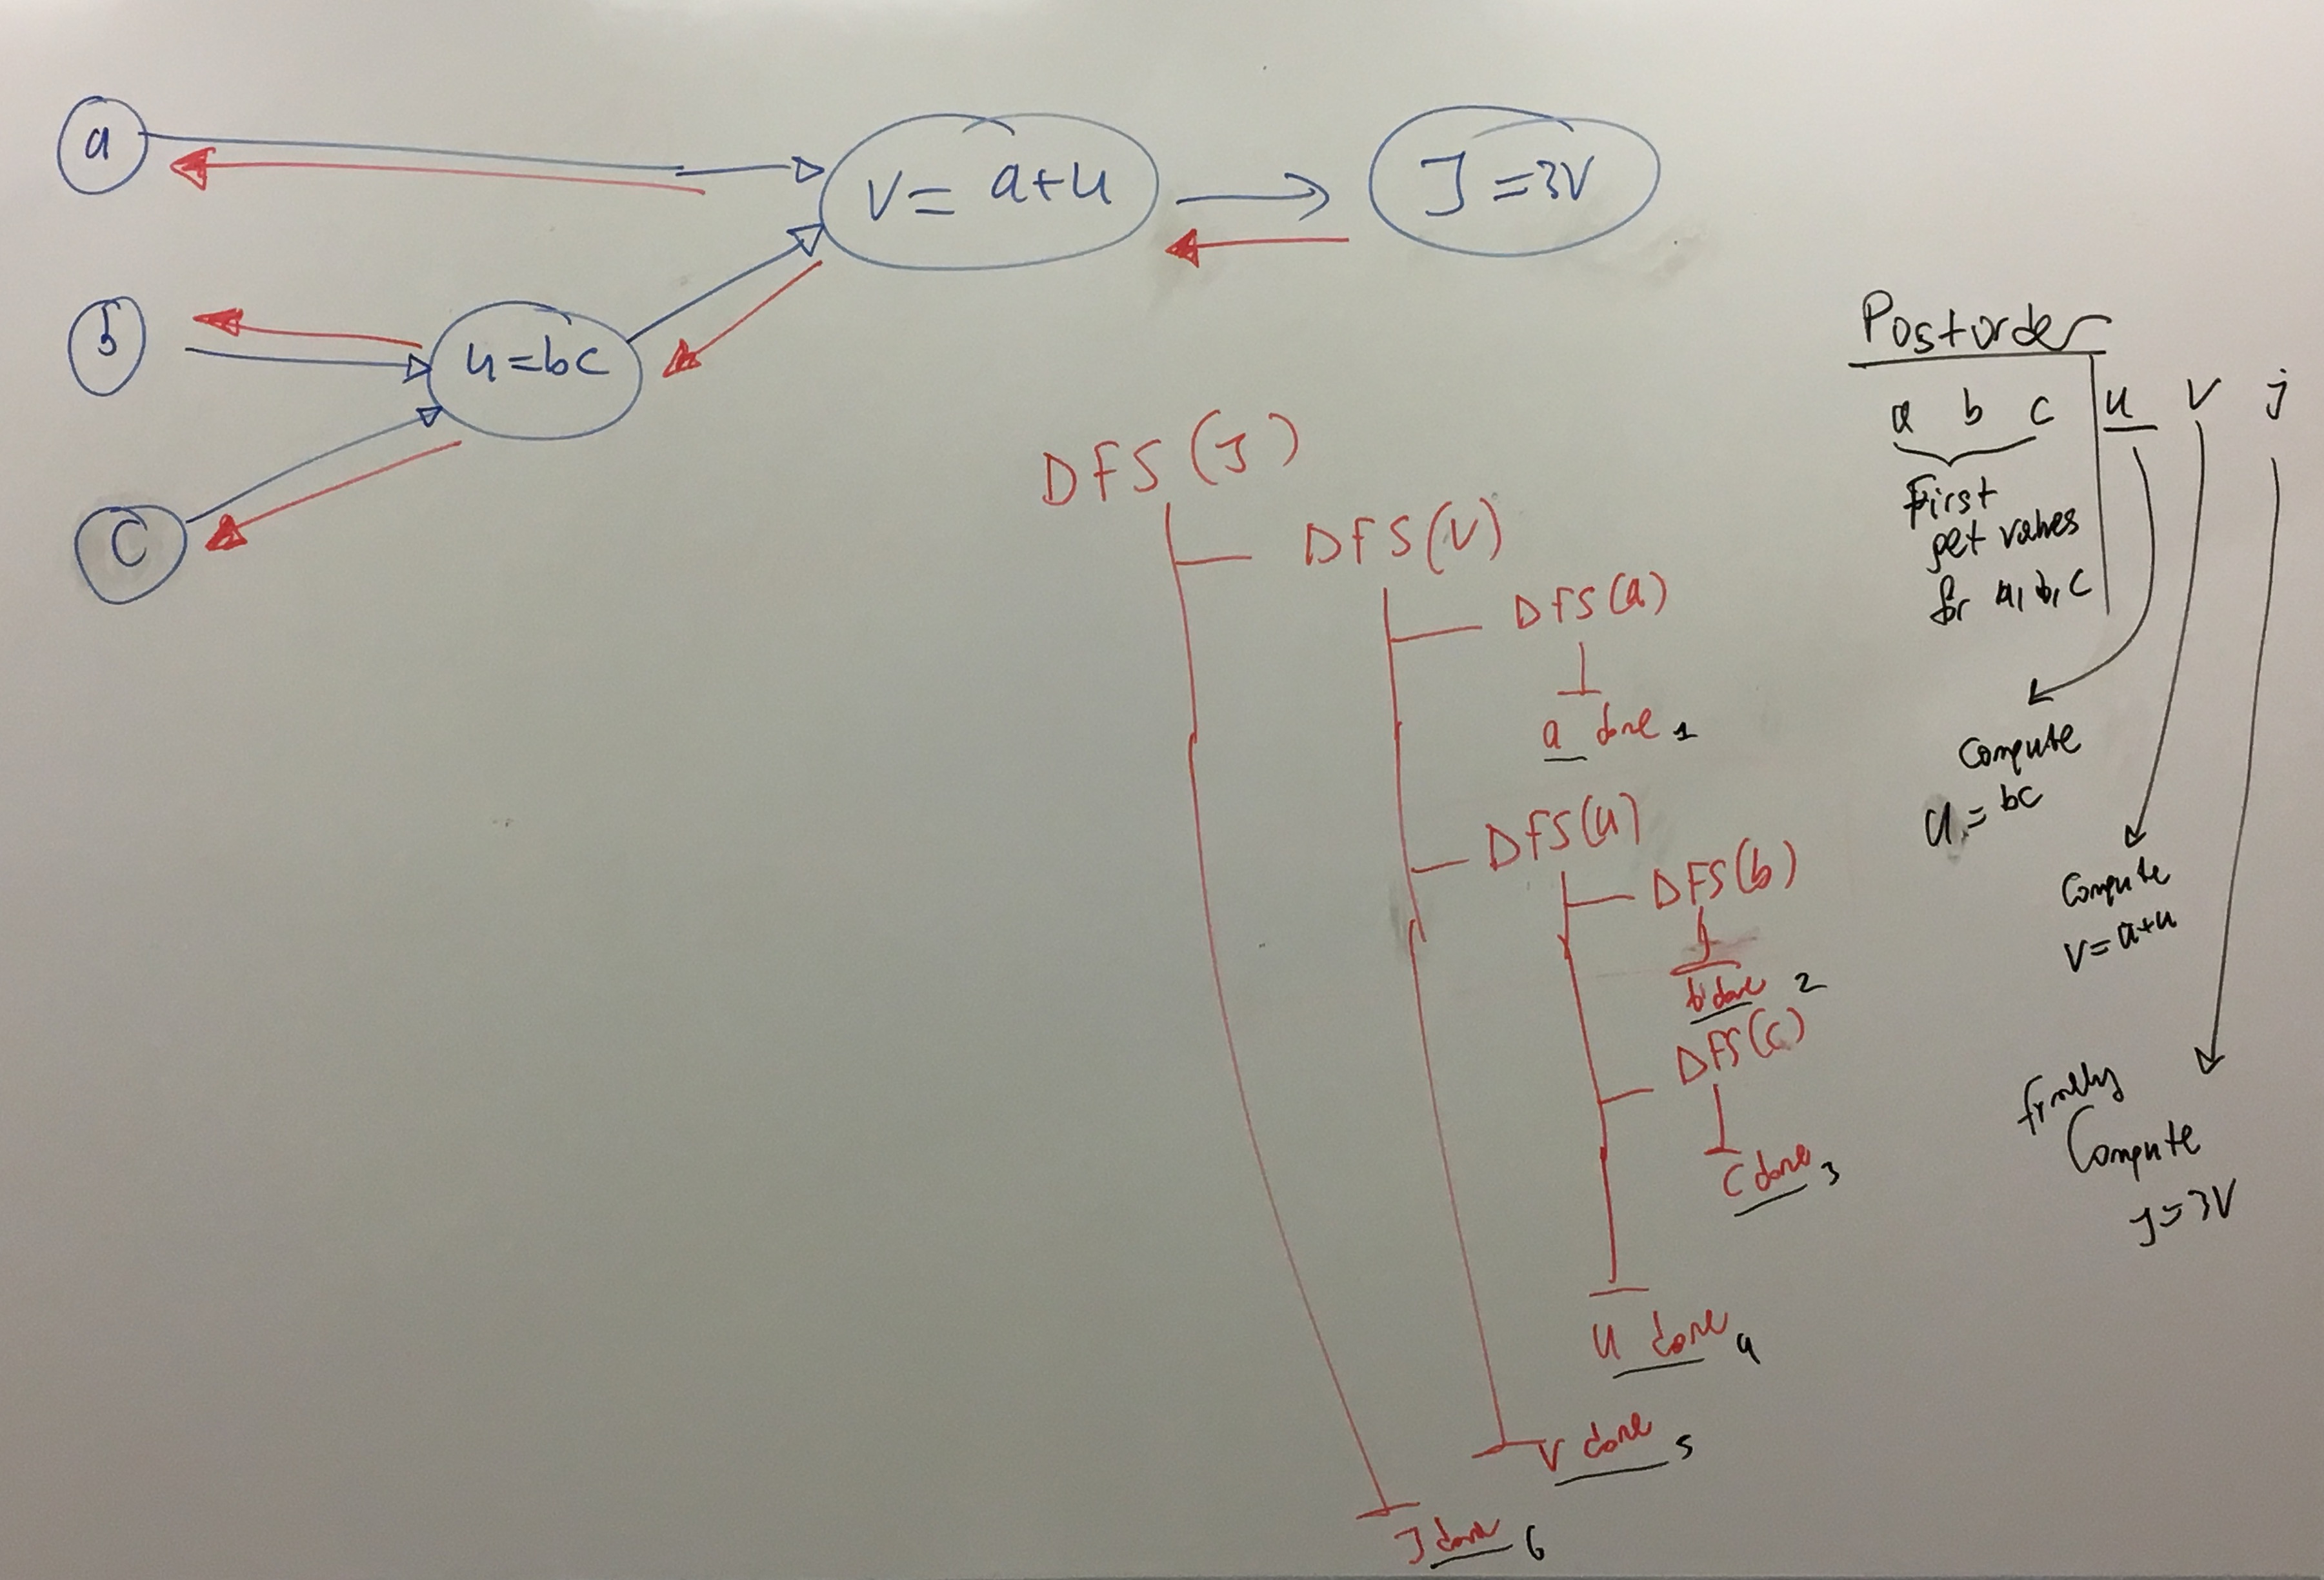 a
V = a+u
J = 3V
b
u = bc
C
DFS(J)
DFS(V)
DFS(a)
a done 1
DFS(u)
DFS(b)
b done 2
DFS(c)
C done 3
u done 4
V done 5
J done 6
Postorder
a b c u v j
First
get values
for a, b, c
Compute
u = bc
Compute
V = a+u
finally
Compute
J = 3V